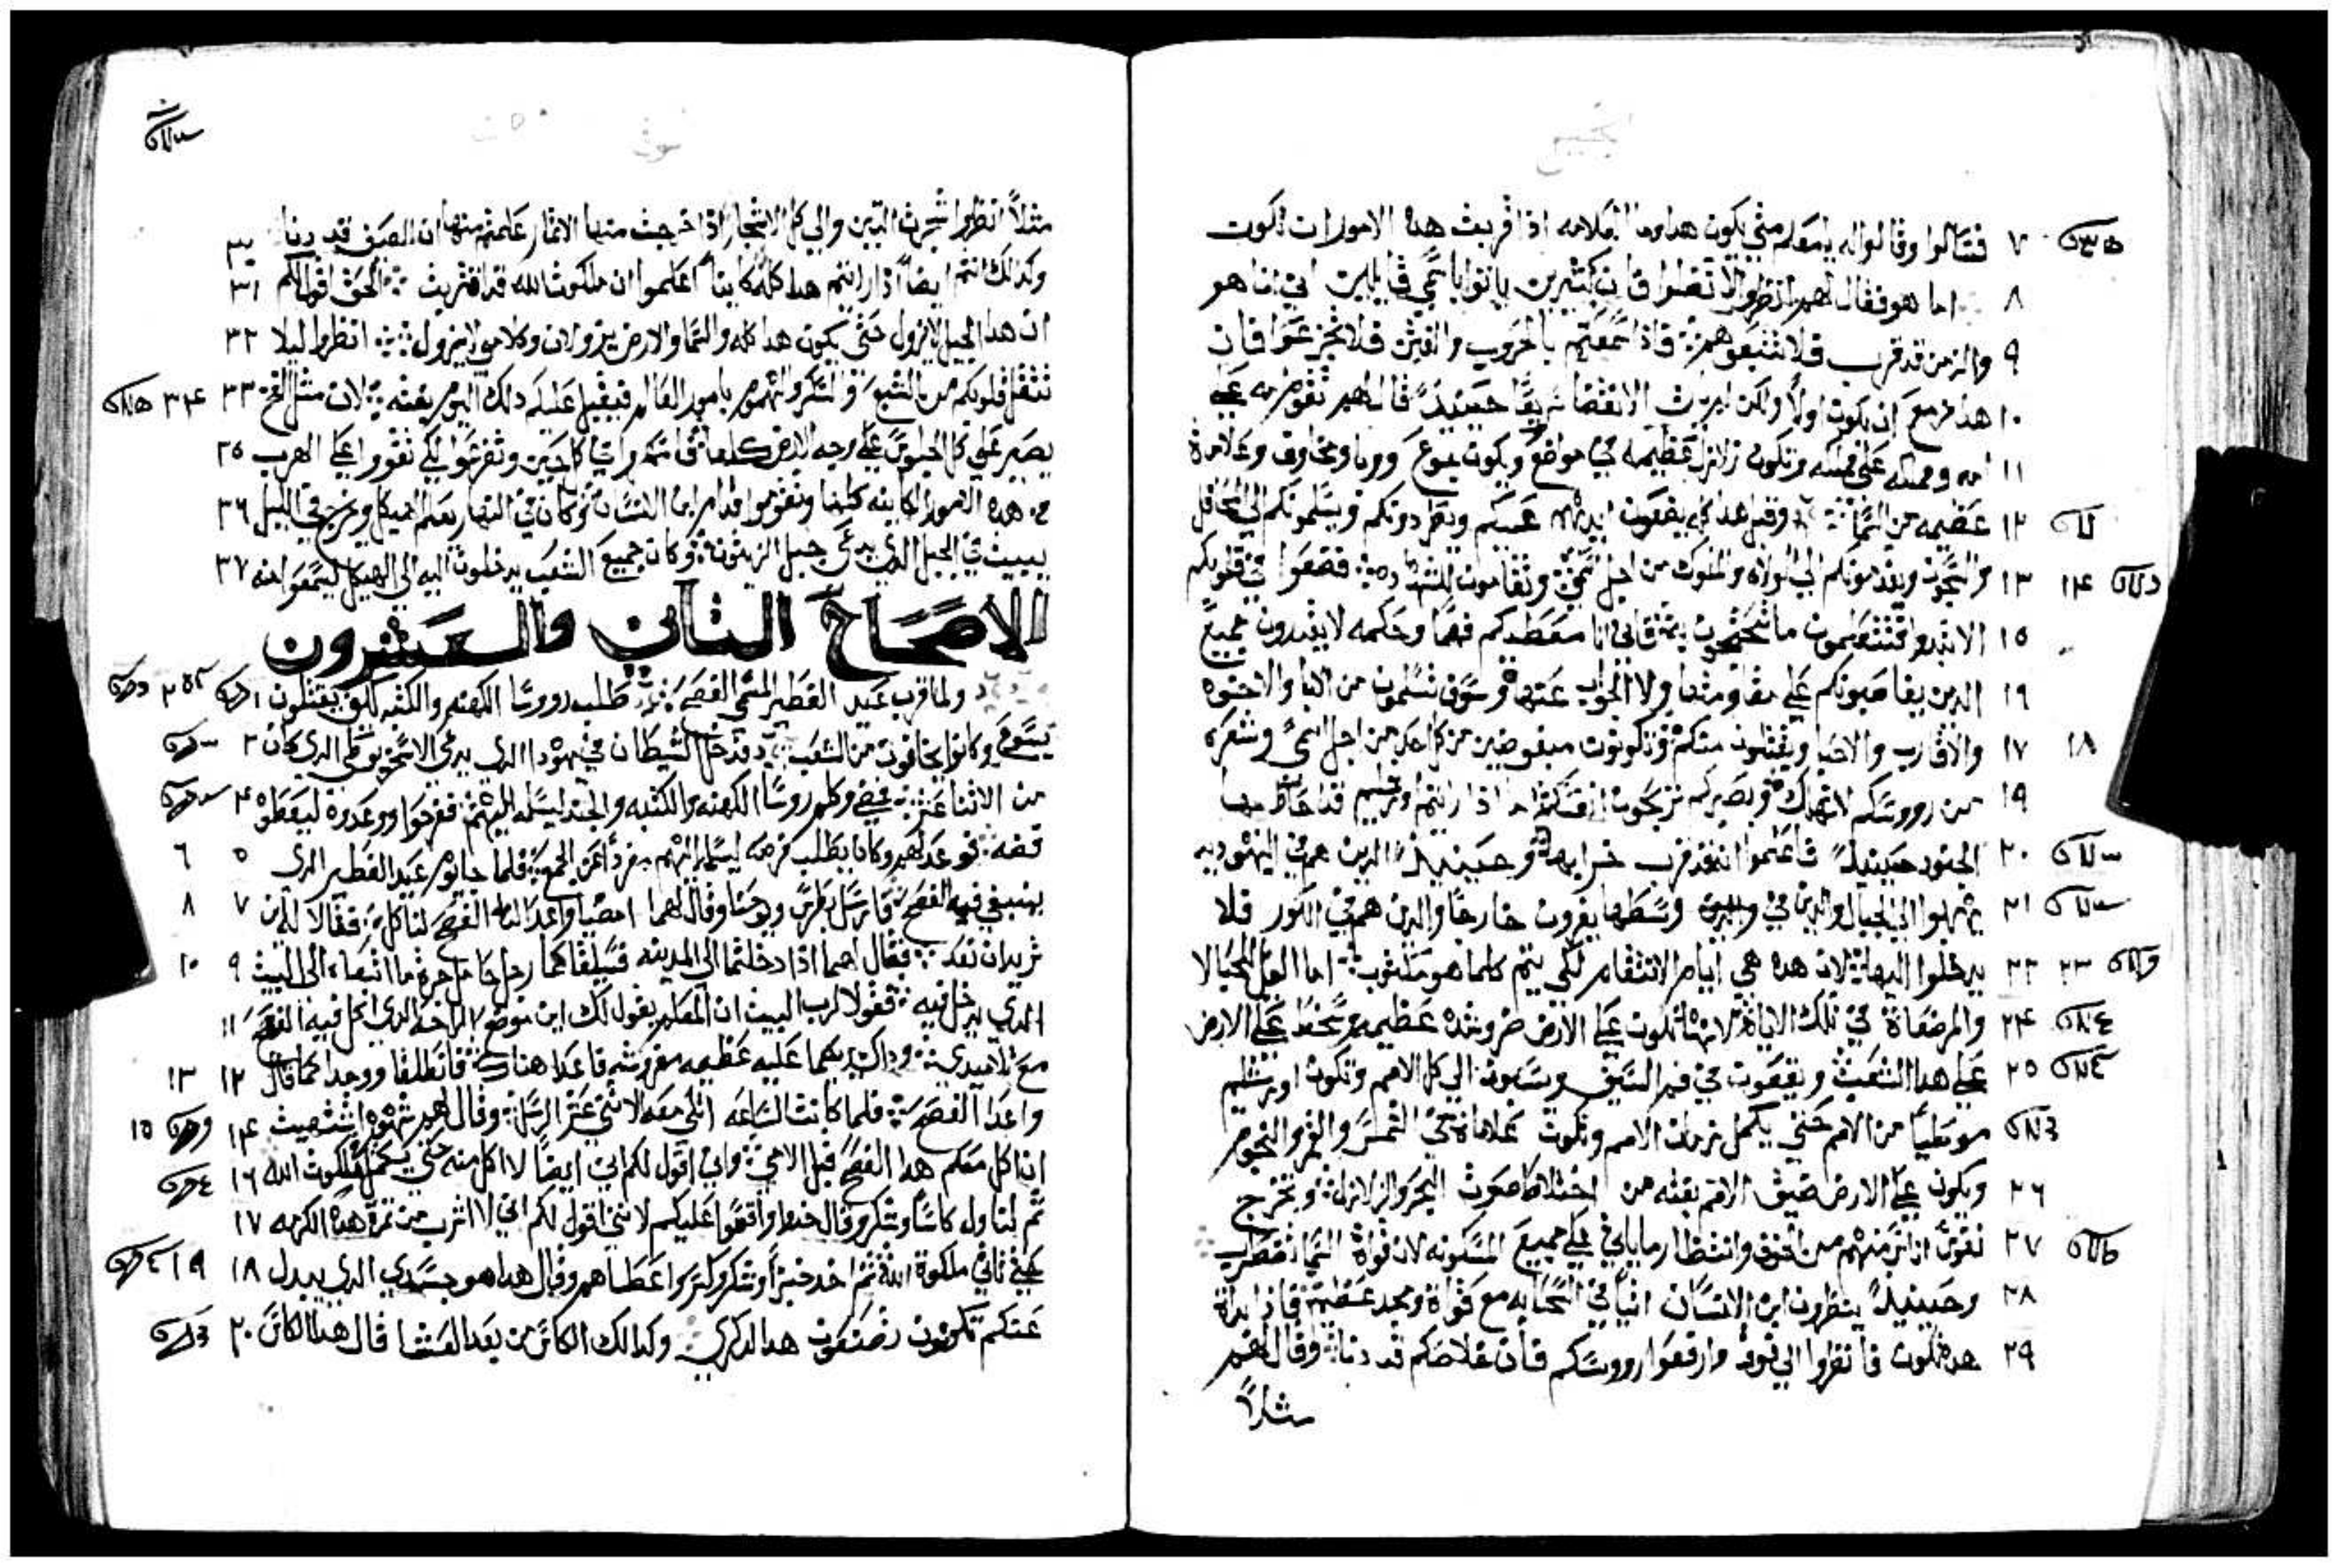 انجيل
٧ فتسالوا وقالوا له يا معلم متي يكون هدا وما العلامه اذا قربت هده الامور ان تكون
٨ اما هو فقال لهم انظروا لا تضلوا فان كثيرين ياتوا باسمي قايلين اني انا هو
٩ والزمن قد قرب فلا تتبعوهم فاذا سمعتم بالحروب والفتن فلا تجزعوا فان
١٠ هدا مزمع ان يكون اولاً ولكن ليس الانقضا حينيدً قال لهم تقوم امه علي
١١ امه ومملكه علي مملكه وتكون زلازل عظيمه في مواضع ويكون جوع ووبا ومخاوف وعلامات
١٢ عظيمه من السما وقبل هدا كله يضعون ايديهم عليكم ويطردونكم ويسلمونكم الي المحافل
١٣ ١٤ والسجون ويقدمونكم الي الولاه والملوك من اجل اسمي وتقامون للشهاده فضعوا في قلوبكم
١٥ الا تبدوا فتتعلمون ما تحتجون به فاني انا معطيكم فهماً وحكمه لا يقدرون جميع
١٦ الدين يقاصبونكم علي مقاومتها ولا الجواب عنها وسوف تسلمون من الابا والاخوه
١٧ ١٨ والاقارب والاصدقا ويقتلون منكم وتكونون مبغوضين من كل احد من اجل اسمي وشعره
١٩ من رووسكم لا تهلك وبصبركم تربحون انفسكم اذا رايتم اورشليم قد احاط بها
٢٠ الجنود حينيدً فاعلموا انه قد قرب خرابها وحينيدً الدين هم في اليهوديه
٢١ يهربوا الي الجبال والدين في وسطها يفرون خارجاً والدين هم في الكور فلا
٢٢ ٢٣ يدخلوا اليها لان هده هي ايام الانتقام لكي يتم كلما هو مكتوب اما الويل للحبالا
٢٤ والمرضعات في تلك الايام لانها تكون علي الارض ضروشده عظيمه وسخط علي الارض
٢٥ علي هدا الشعب ويقعون في فم السيف ويسبون الي كل الامم وتكون اورشليم
موطياً من الامم حتي يكمل زمان الامم وتكون علامات في الشمس والقمر والنجوم
٢٦ ويكون علي الارض ضيق الامم بغته من اختلاط صوت البحر والزلازل وتخرج
٢٧ نفوس اناس منهم من الخوف وانتظار ما ياتي علي جميع المسكونه لان قوات السما تضطرب
٢٨ وحينيدً ينظرون ابن الانسان اتياً في السحابه مع قوات ومجد عظيم فاذا بدات
٢٩ هده تكون فانظروا الي فوق وارفعوا رووسكم فان خلاصكم قد دنا وقال لهم
مثلاً
لوقا
مثلاً انظروا شجرت التين والي كل الاشجار اذا اخرجت منها الاثمار علمتم منها ان الصيف قد دنا ٣٠
وكدلك انتم ايضاً اذا رايتم هدا كله كاينا اعلموا ان ملكوت الله قد اقتربت الحق اقول لكم ٣١
ان هدا الجيل لا يزول حتي يكون هدا كله والسما والارض يزولان وكلامي لا يزول انظروا ليلا ٣٢
تثقل قلوبكم من الشبع والسكر والهموم بامور العالم فيقبل عليكم دلك اليوم بغته لان مثل الفخ ٣٣ ٣٤
يصير علي كل الجلوس علي وجه الارض كلها في كل حين وتضرعوا لكي تقووا علي الهرب ٣٥
من هده الامور الكاينه كلها وتقوموا قدام ابن الانسان وكان في النهار يعلم الهيكل ويخرج في الليل ٣٦
يبيت في الجبل الدي يدعي جبل الزيتون وكان جميع الشعب يدخلون اليه الي الهيكل ليسمعوا منه ٣٧
الاصحاح الثاني والعشرون
ولما قرب عيد الفطير المسمي الفصح طلب رووسا الكهنه والكتبه كيف يقتلون ١ ٢
يسوع وكانوا يخافون من الشعب فدخل الشيطان في يهودا الدي يدعي الاسخريوطي الدي كان ٣
من الاثنا عشر فمضي وكلم روسا الكهنه والكتبه والجند ليسلمه اليهم ففرحوا ووعدوه ليعطوه ٤
فضه فوعدهم وكان يطلب فرصه ليسلمه اليهم مفرداً عن الجمع فلما جا يوم عيد الفطير الدي ٥ ٦
ينبغي فيه الفصح فارسل بطرس ويوحنا وقال لهما امضيا واعدا لنا الفصح لناكل فقالا له اين ٧ ٨
تريد ان نعد فقال لهما اذا دخلتما الي المدينه فسيلقاكما رجل حامل جرة ما اتبعاه الي البيت ٩ ١٠
الدي يدخل فيه فقولا لرب البيت ان المعلم يقول لك اين موضع الراحه الدي اكل فيه الفصح ١١
مع تلاميدي وداك يريكما عليه عظيمه مفروشه فاعدا هناك فانطلقا ووجدا كما قال ١٢ ١٣
واعدا الفصح فلما كانت الساعه اتكي معه الاثني عشر الرسل وقال لهم شهوه اشتهيت ١٤ ١٥
ان اكل معكم هدا الفصح قبل الامي واني اقول لكم اني ايضاً لا اكل منه حتي يكمل ملكوت الله ١٦
ثم تناول كاساً وشكر وقال خدوا واقسموا عليكم لانني اقول لكم اني لا اشرب من ثمرة هده الكرمه ١٧
حتي تاتي ملكوة الله ثم اخد خبزاً وشكر وكسر واعطاهم وقال هدا هو جسدي الدي يبدل ١٨ ١٩
عنكم تكونون تصنعون هدا لدكري وكدالك الكاس من بعد العشا قال هدا الكاس ٢٠